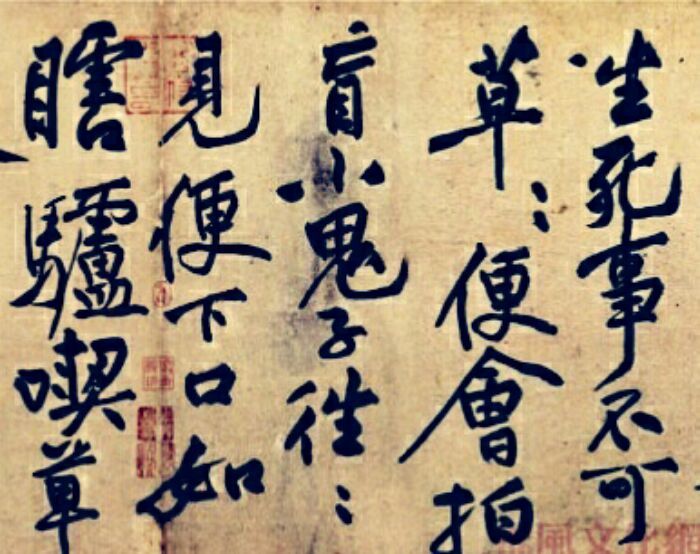 生死事不可
草〻便會拍
盲小鬼子往〻
見便下口如
瞎驢喫草